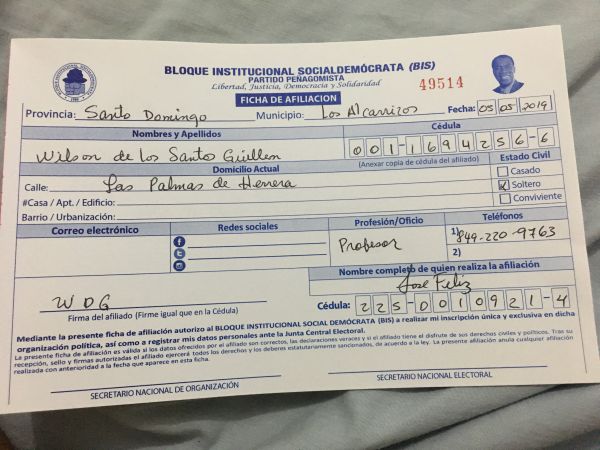 BLOQUE INSTITUCIONAL SOCIALDEMÓCRATA (BIS)
PARTIDO PEÑAGOMISTA
Libertad, Justicia, Democracia y Solidaridad
49514
FICHA DE AFILIACION
Provincia: Santo Domingo Municipio: Los Alcarrizos Fecha: 05/05/2019
Nombres y Apellidos Cédula
Wilson de los Santos Güillen 001-1694256-6
(Anexar copia de cédula del afiliado)
Domicilio Actual Estado Civil
Calle: Las Palmas de Herrera Casado
#Casa / Apt. / Edificio: Soltero
Barrio / Urbanización: Conviviente
Correo electrónico Redes sociales Profesión/Oficio Teléfonos
Profesor 1) 849-220-9763
2)
Nombre completo de quien realiza la afiliación
José Feliz
WDG
Firma del afiliado (Firme igual que en la Cédula) Cédula: 225-0010921-4
Mediante la presente ficha de afiliación autorizo al BLOQUE INSTITUCIONAL SOCIAL DEMÓCRATA (BIS) a realizar mi inscripción única y exclusiva en dicha
organización política, así como a registrar mis datos personales ante la Junta Central Electoral.
La presente ficha de afiliación es válida si los datos ofrecidos por el afiliado son correctos, las declaraciones veraces y si el afiliado tiene el disfrute de sus derechos civiles y políticos. Tras su
recepción, sello y firmas autorizadas el afiliado ejercerá todos los derechos y los deberes estatutariamente sancionados, de acuerdo a la ley. La presente afiliación anula cualquier afiliación
realizada con anterioridad a la fecha que aparece en esta ficha.
SECRETARIO NACIONAL DE ORGANIZACIÓN SECRETARIO NACIONAL ELECTORAL